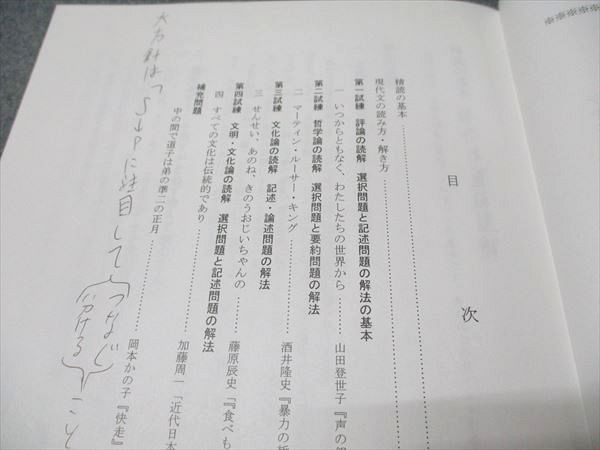 目次
精読の基本……………
現代文の読み方・解き方……………
第一試練 評論の読解 選択問題と記述問題の解法の基本
一 いつからともなく、わたしたちの世界から……… 山田登世子『声の
第二試練 哲学論の読解 選択問題と要約問題の解法
二 マーティン・ルーサー・キング……………… 酒井隆史『暴力の哲
第三試練 文化論の読解 記述・論述問題の解法
三 せんせい、あのね、きのうおじいちゃんの……… 藤原辰史『食べも
第四試練 文明・文化論の読解 選択問題と記述問題の解法
四 すべての文化は伝統的であり……………… 加藤周一「近代日本
補充問題
中の間で道子は弟の準二の正月……………… 岡本かの子『快走』
大方針は、S↓Pに注目して(つなじ
分ける)こと